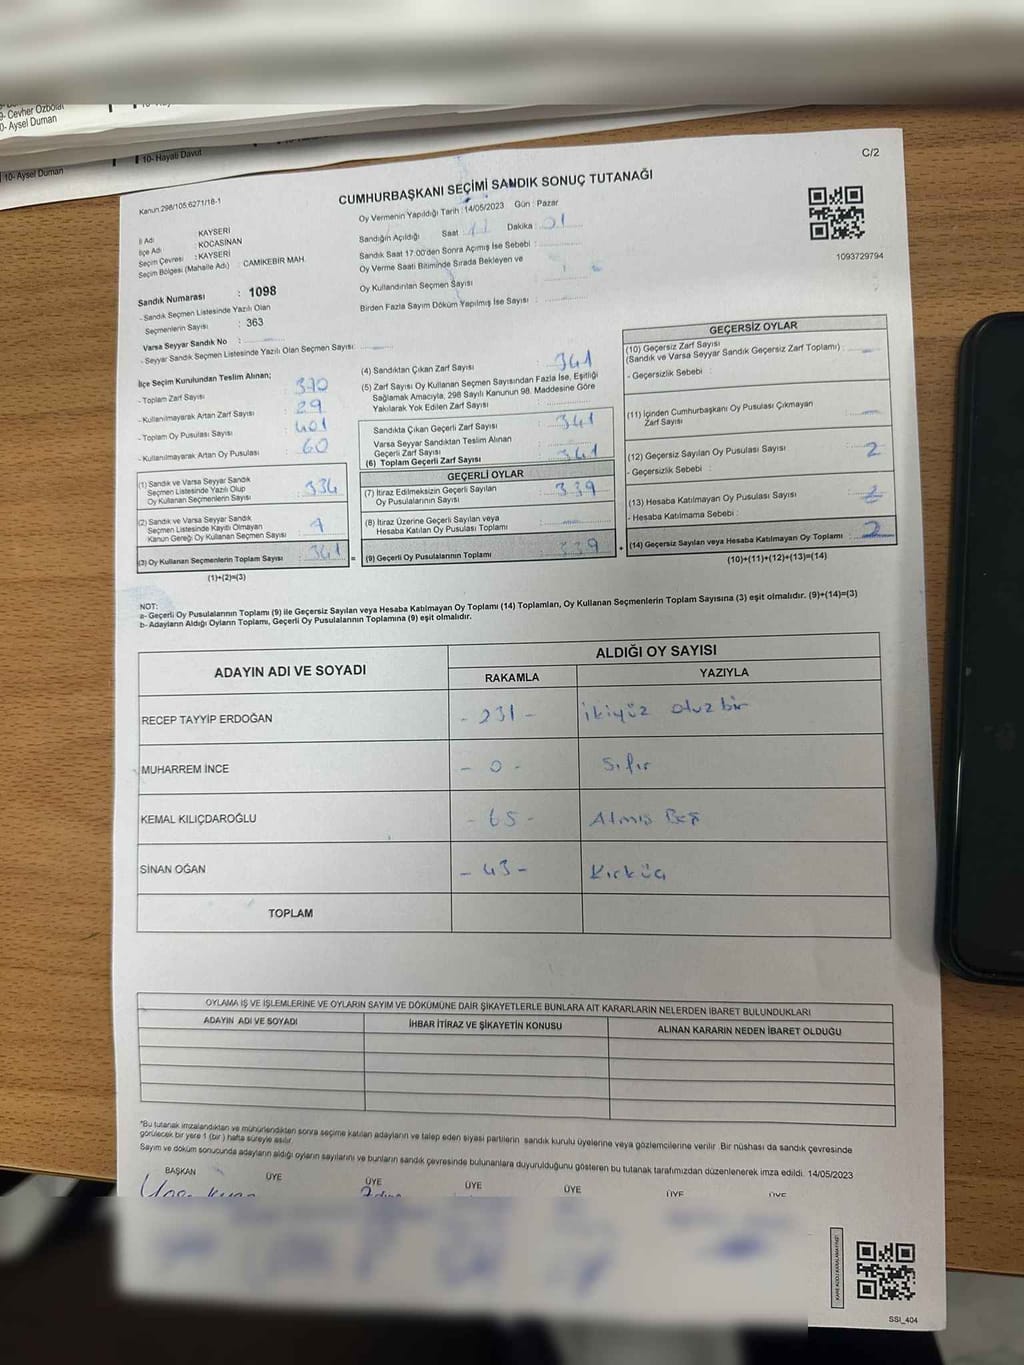 9- Cevher Özbolat
0- Aysel Duman
10- Aysel Duman
10- Hayati Davut
C/2
Kanun 298/105.6271/18-1
CUMHURBAŞKANI SEÇİMİ SANDIK SONUÇ TUTANAĞI
Oy Vermenin Yapıldığı Tarih :14/05/2023 Gün : Pazar
İl Adı : KAYSERİ
İlçe Adı : KOCASİNAN
Seçim Çevresi : KAYSERİ
Seçim Bölgesi (Mahalle Adı) : CAMİKEBİR MAH.
Sandığın Açıldığı Saat Dakika
Sandık Saat 17:00'den Sonra Açımış İse Sebebi :
Oy Verme Saati Bitiminde Sırada Bekleyen ve
Oy Kullandırılan Seçmen Sayısı
Birden Fazla Sayım Döküm Yapılmış İse Sayısı :
1093729794
Sandık Numarası : 1098
- Sandık Seçmen Listesinde Yazılı Olan
Seçmenlerin Sayısı : 363
Varsa Seyyar Sandık No :
- Seyyar Sandık Seçmen Listesinde Yazılı Olan Seçmen Sayısı:
İlçe Seçim Kurulundan Teslim Alınan;
- Toplam Zarf Sayısı : 370
- Kullanılmayarak Artan Zarf Sayısı : 29
- Toplam Oy Pusulası Sayısı : 401
- Kullanılmayarak Artan Oy Pusulası : 60
(1) Sandık ve Varsa Seyyar Sandık
Seçmen Listesinde Yazılı Olup
Oy Kullanan Seçmenlerin Sayısı : 334
(2) Sandık ve Varsa Seyyar Sandık
Seçmen Listesinde Kayıtlı Olmayan
Kanun Gereği Oy Kullanan Seçmen Sayısı : 7
(3) Oy Kullanan Seçmenlerin Toplam Sayısı : 341
(1)+(2)=(3)
(4) Sandıktan Çıkan Zarf Sayısı : 341
(5) Zarf Sayısı Oy Kullanan Seçmen Sayısından Fazla İse, Eşitliği
Sağlamak Amacıyla, 298 Sayılı Kanunun 98. Maddesine Göre
Yakılarak Yok Edilen Zarf Sayısı :
Sandıkta Çıkan Geçerli Zarf Sayısı : 341
Varsa Seyyar Sandıktan Teslim Alınan
Geçerli Zarf Sayısı
(6) Toplam Geçerli Zarf Sayısı : 341
GEÇERLİ OYLAR
(7) İtiraz Edilmeksizin Geçerli Sayılan
Oy Pusulalarının Sayısı : 339
(8) İtiraz Üzerine Geçerli Sayılan veya
Hesaba Katılan Oy Pusulası Toplamı :
= (9) Geçerli Oy Pusulalarının Toplamı : 339 +
GEÇERSİZ OYLAR
(10) Geçersiz Zarf Sayısı
(Sandık ve Varsa Seyyar Sandık Geçersiz Zarf Toplamı) :
- Geçersizlik Sebebi :
(11) İçinden Cumhurbaşkanı Oy Pusulası Çıkmayan
Zarf Sayısı :
(12) Geçersiz Sayılan Oy Pusulası Sayısı : 2
- Geçersizlik Sebebi :
(13) Hesaba Katılmayan Oy Pusulası Sayısı :
- Hesaba Katılmama Sebebi :
(14) Geçersiz Sayılan veya Hesaba Katılmayan Oy Toplamı : 2
(10)+(11)+(12)+(13)=(14)
NOT:
a- Geçerli Oy Pusulalarının Toplamı (9) ile Geçersiz Sayılan veya Hesaba Katılmayan Oy Toplamı (14) Toplamları, Oy Kullanan Seçmenlerin Toplam Sayısına (3) eşit olmalıdır. (9)+(14)=(3)
b- Adayların Aldığı Oyların Toplamı, Geçerli Oy Pusulalarının Toplamına (9) eşit olmalıdır.
ADAYIN ADI VE SOYADI
ALDIĞI OY SAYISI
RAKAMLA YAZIYLA
RECEP TAYYİP ERDOĞAN - 231 - ikiyüz otuz bir
MUHARREM İNCE - 0 - Sıfır
KEMAL KILIÇDAROĞLU - 65 - Atmış Beş
SİNAN OĞAN - 43 - Kırküç
TOPLAM
OYLAMA İŞ VE İŞLEMLERİNE VE OYLARIN SAYIM VE DÖKÜMÜNE DAİR ŞİKAYETLERLE BUNLARA AİT KARARLARIN NELERDEN İBARET BULUNDUKLARI
ADAYIN ADI VE SOYADI İHBAR İTİRAZ VE ŞİKAYETİN KONUSU ALINAN KARARIN NEDEN İBARET OLDUĞU
*Bu tutanak imzalandıktan ve mühürlendikten sonra seçime katılan adayların ve talep eden siyasi partilerin sandık kurulu üyelerine veya gözlemcilerine verilir. Bir nüshası da sandık çevresinde
görülecek bir yere 1 (bir ) hafta süreyle asılır.
Sayım ve döküm sonucunda adayların aldığı oyların sayılarını ve bunların sandık çevresinde bulunanlara duyurulduğunu gösteren bu tutanak tarafımızdan düzenlenerek imza edildi. 14/05/2023
BAŞKAN ÜYE ÜYE ÜYE ÜYE ÜYE ÜYE
SSI_404